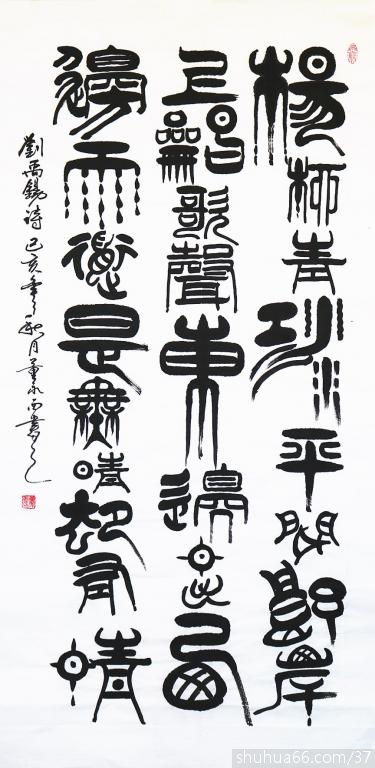 楊柳青江水平聞郎岸
上唱歌聲東邊日出西
邊雨道是無晴却有晴
劉禹錫詩 己亥年秋月董書
shuhua66.com/37